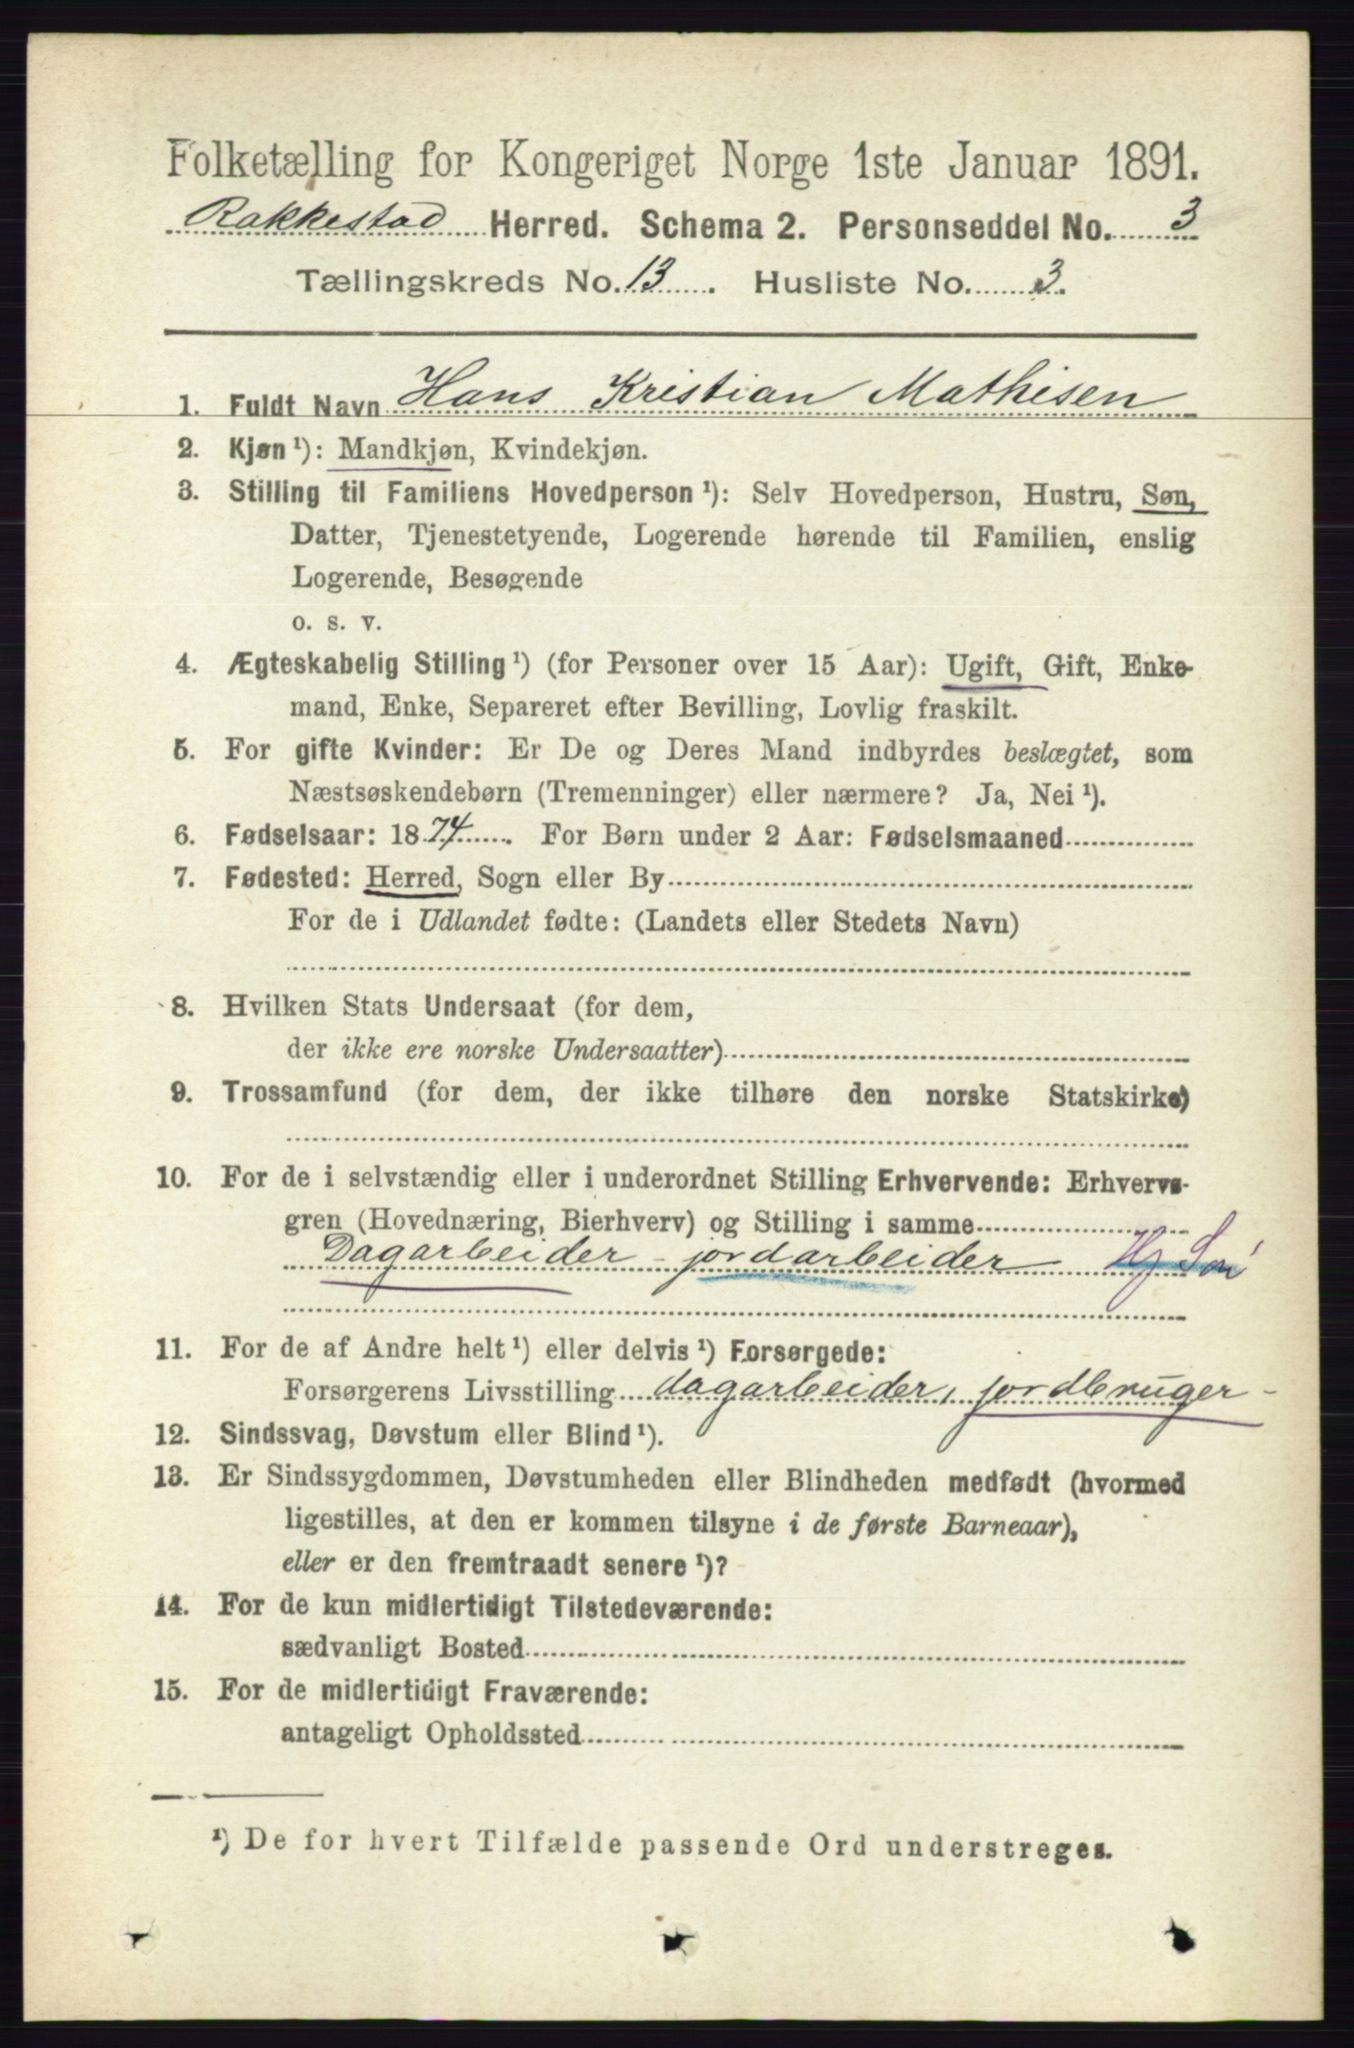 Folketælling for Kongeriget Norge 1ste Januar 1891.
Rakkestad Herred. Schema 2. Personseddel No. 3
Tællingskreds No. 13. Husliste No. 3.
1. Fuldt Navn Hans Kristian Mathisen
2. Kjøn ¹): Mandkjøn, Kvindekjøn.
3. Stilling til Familiens Hovedperson ¹): Selv Hovedperson, Hustru, Søn,
Datter, Tjenestetyende, Logerende hørende til Familien, enslig
Logerende, Besøgende
o. s. v.
4. Ægteskabelig Stilling ¹) (for Personer over 15 Aar): Ugift, Gift, Enke-
mand, Enke, Separeret efter Bevilling, Lovlig fraskilt.
5. For gifte Kvinder: Er De og Deres Mand indbyrdes beslægtet, som
Næstsøskendebørn (Tremenninger) eller nærmere? Ja, Nei ¹).
6. Fødselsaar: 1874. For Børn under 2 Aar: Fødselsmaaned
7. Fødested: Herred, Sogn eller By
For de i Udlandet fødte: (Landets eller Stedets Navn)
8. Hvilken Stats Undersaat (for dem,
der ikke ere norske Undersaatter)
9. Trossamfund (for dem, der ikke tilhøre den norske Statskirke)
10. For de i selvstændig eller i underordnet Stilling Erhvervende: Erhvervs-
gren (Hovednæring, Bierhverv) og Stilling i samme
Dagarbeider - jordarbeider Hj Søn
11. For de af Andre helt ¹) eller delvis ¹) Forsørgede:
Forsørgerens Livsstilling dagarbeider, jordbruger -
12. Sindssvag, Døvstum eller Blind ¹).
13. Er Sindssygdommen, Døvstumheden eller Blindheden medfødt (hvormed
ligestilles, at den er kommen tilsyne i de første Barneaar),
eller er den fremtraadt senere ¹)?
14. For de kun midlertidigt Tilstedeværende:
sædvanligt Bosted
15. For de midlertidigt Fraværende:
antageligt Opholdssted
¹) De for hvert Tilfælde passende Ord understreges.